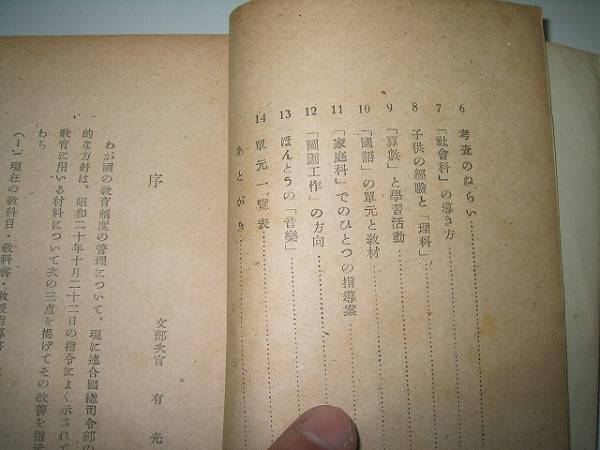 6 考査のねらい
7 「社會科」の導き方
8 子供の經驗と「理科」
9 「算數」と學習活動
10 「國語」の單元と敎材
11 「家庭科」でのひとつの指導案
12 「圖画工作」の方向
13 ほんとうの「音樂」
14 單元一覽表
あとがき
序
文部次官 有光
わが國の敎育制度の管理について、現に連合國總司令部の
的な方針は、昭和二十年十月二十二日の指令によく示されて
敎育に用いる材料について次の三点を揭げてその改善を指示
わち
(1) 現在の敎科目・敎科書・敎授指導書